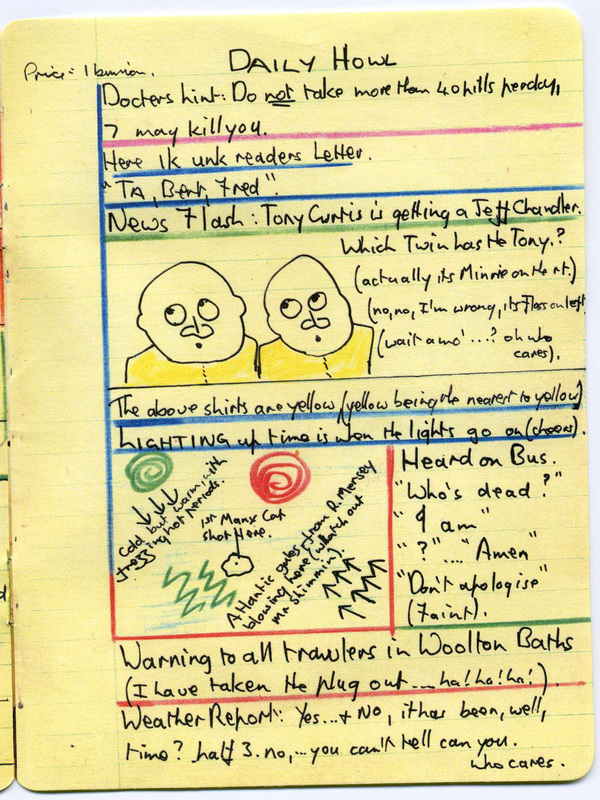 DAILY HOWL
Price = 1 bunion.
Docters hint: Do not take more than 40 pills per day,
7 may kill you.
Here 1k unk readers Letter.
"TA, Bert, Fred".
News Flash: Tony Curtis is getting a Jeff Chandler.
Which Twin has the Tony.?
(actually its Minnie on the rt.)
(no, no, I'm wrong, its Floss on left
(wait a mo'....? oh who
cares).
The above shirts are yellow (yellow being the nearest to yellow)
LIGHTING up time is wen the lights go on (cheers).
Cold but warm, with
frezzing hot periods.
1st Manx Cat
shot Here.
Atlantic gales from R. Mersey
blowing home (whatch out
mr. Slimmin).
Heard on Bus.
"Who's dead?"
"I am"
"?"..."Amen"
"Don't apologise"
(Faint).
Warning to all trawlers in Woolton Baths
(I have taken the plug out....ha! ha! ha!).
Weather Report: Yes...+ No, it has been, well,
time? half 3. no,...you can't tell can you.
who cares.